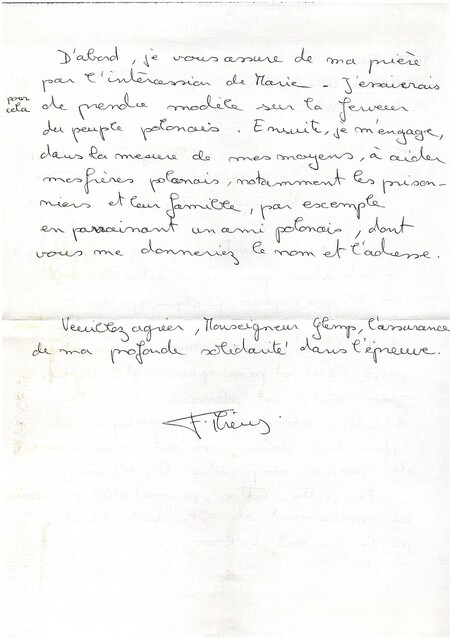 D'abord, je vous assure de ma prière
par l'intercession de Marie - J'essaierais
pour cela
de prendre modèle sur la ferveur
du peuple polonais. Ensuite, je m'engage,
dans la mesure de mes moyens, à aider
mes frères polonais, notamment les prison-
niers et leur famille, par exemple
en parrainant un ami polonais, dont
vous me donneriez le nom et l'adresse.
Veuillez agréer, Monseigneur Glemp, l'assurance
de ma profonde solidarité dans l'épreuve.
F.